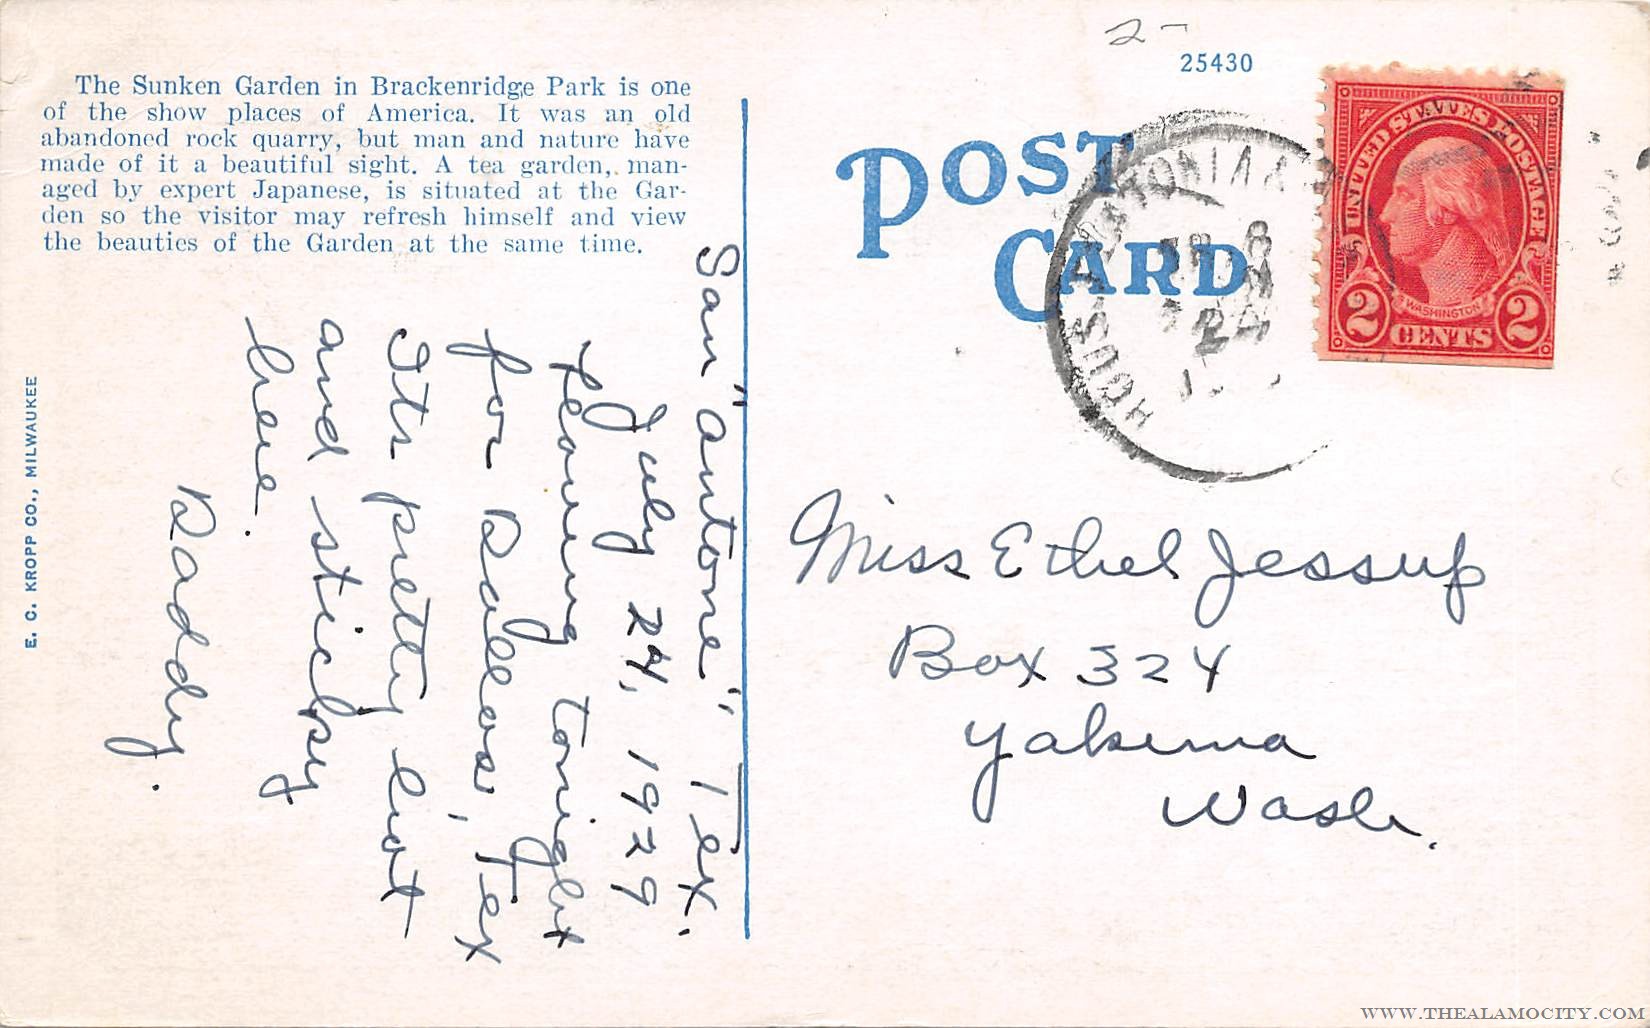 2-
25430
The Sunken Garden in Brackenridge Park is one
of the show places of America. It was an old
abandoned rock quarry, but man and nature have
made of it a beautiful sight. A tea garden, man-
aged by expert Japanese, is situated at the Gar-
den so the visitor may refresh himself and view
the beauties of the Garden at the same time.
E. C. KROPP CO., MILWAUKEE
San "antone" Tex.
July 24, 1929
Leaving tonight
for Dallas, Tex
Its pretty hot
and sticky
here.
Daddy.
POST
CARD
UNITED STATES POSTAGE
WASHINGTON
2 CENTS 2
24
Miss Ethel Jessup
Box 324
Yakima
Wash.
WWW.THEALAMOCITY.COM